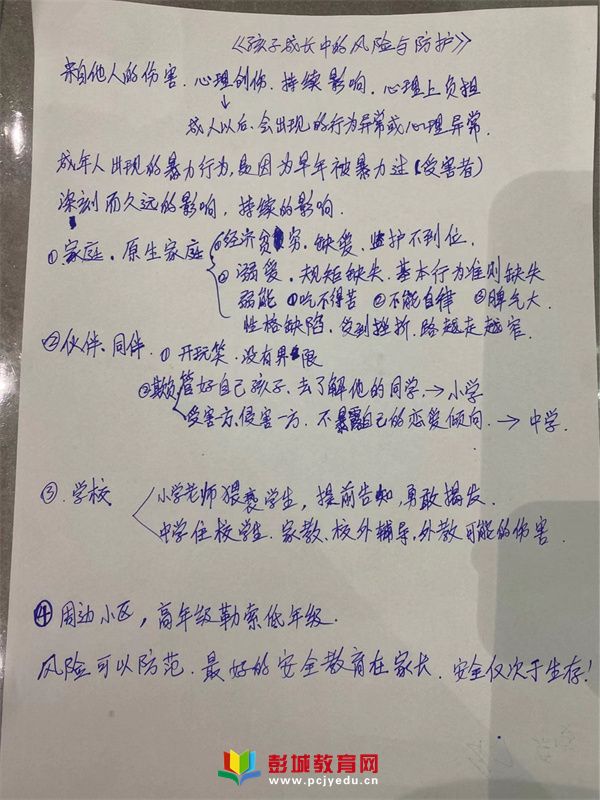 《孩子成长中的风险与防护》
来自他人的伤害.心理创伤.持续影响.心理上负担
↓
成人以后.会出现的行为异常或心理异常.
成年人出现的暴力行为,是因为早年被暴力过(受害者)
深刻而久远的影响,持续的影响.
①家庭.原生家庭 ①经济贫穷.缺爱.监护不到位.
②溺爱.规矩缺失.基本行为准则缺失
弱能 ①吃不得苦 ②不能自律 ③脾气大.
性格缺陷.受到挫折.路越走越窄.
②伙伴.同伴. ①开玩笑.没有界限
②欺负管好自己孩子.去了解他的同学.→小学
受害方.侵害一方.不暴露自己的恋爱倾向.→中学.
③.学校 小学老师猥亵学生,提前告知,勇敢揭发.
中学住校学生.家教.校外辅导,外教可能的伤害.
④周边小区,高年级勒索低年级.
风险可以防范.最好的安全教育在家长.安全仅次于生存!
彭城教育网
www.pcjyedu.cn